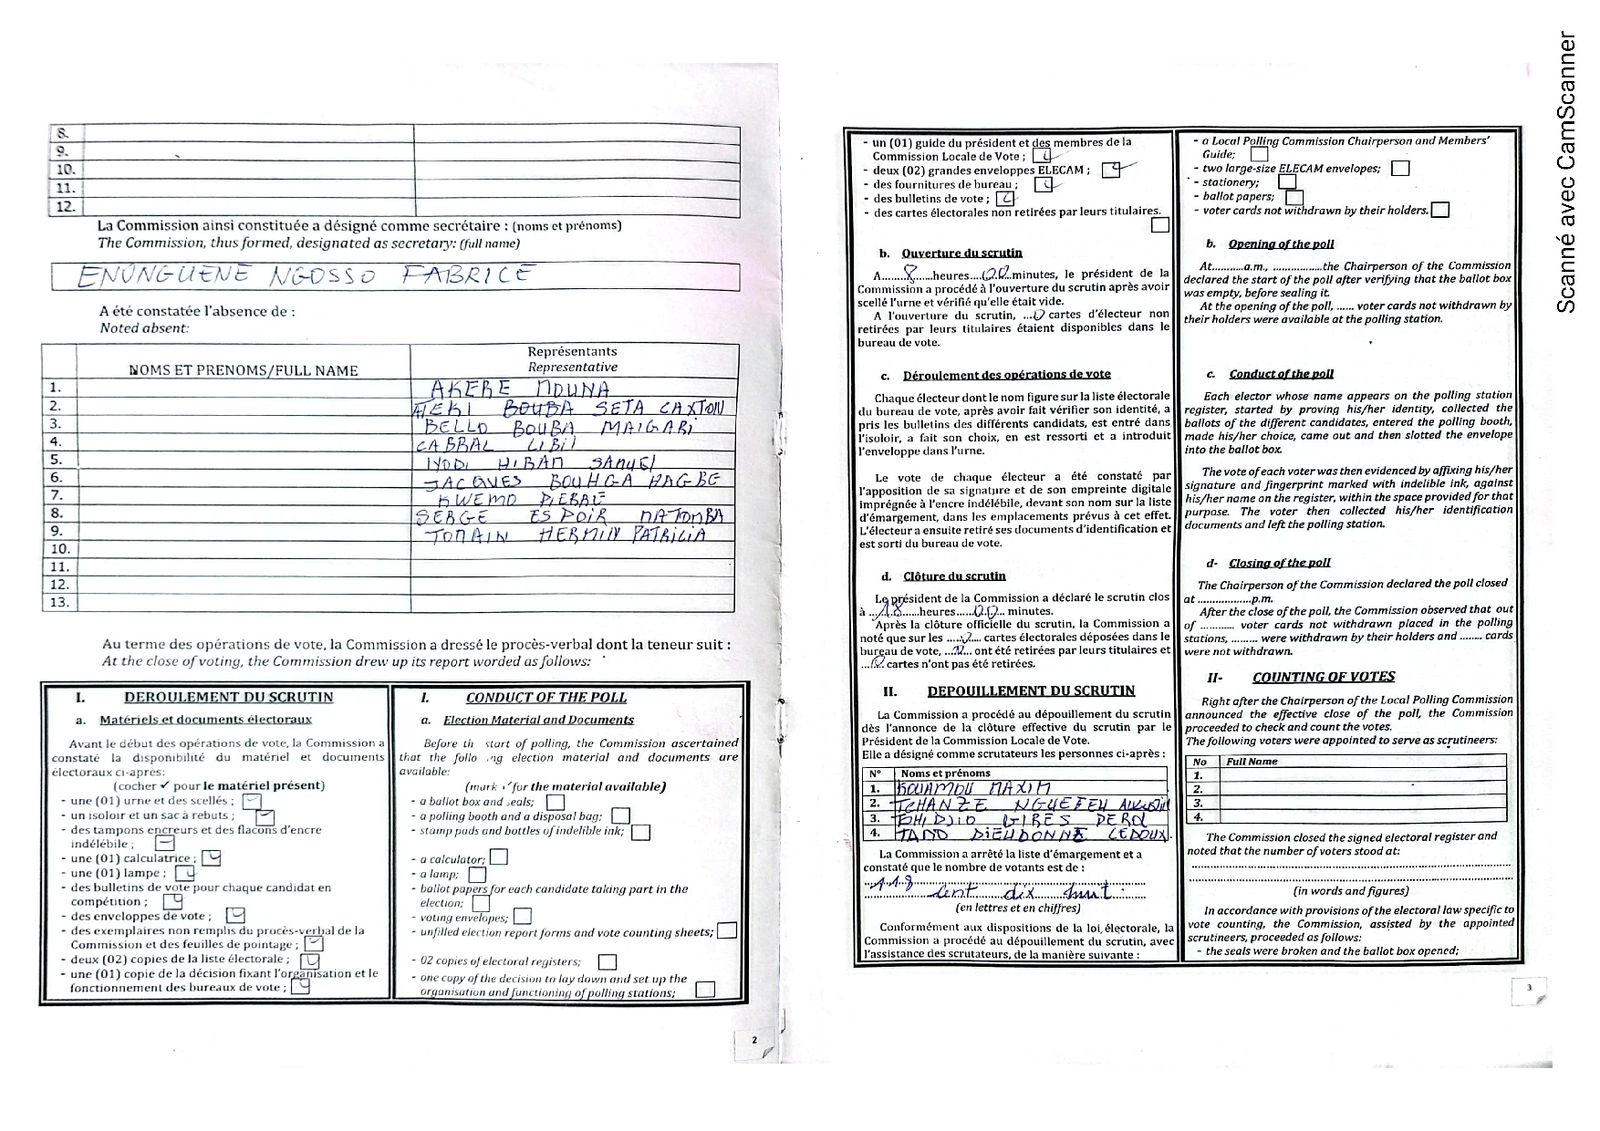 8.
9.
10.
11.
12.
La Commission ainsi constituée a désigné comme secrétaire : (noms et prénoms)
The Commission, thus formed, designated as secretary: (full name)
ENUNGUENE NGOSSO FABRICE
A été constatée l'absence de :
Noted absent:
NOMS ET PRENOMS/FULL NAME
Représentants
Representative
1. AKERE MOUNA
2. BOUBA SETA CAXTON
3. BELLO BOUBA MAIGARI
4. CABRAL LIBII
5. IYODI HIRAM SAMUEL
6. JACQUES BOUHGA HAGBE
7. KWEMO PIERRE
8. SERGE ESPOIR MATOMBA
9. TOMAIN HERMIN PATRICIA
10.
11.
12.
13.
Au terme des opérations de vote, la Commission a dressé le procès-verbal dont la teneur suit :
At the close of voting, the Commission drew up its report worded as follows:
I. DEROULEMENT DU SCRUTIN
a. Matériels et documents électoraux
Avant le début des opérations de vote, la Commission a
constaté la disponibilité du matériel et documents
électoraux ci-après:
(cocher ✓ pour le matériel présent)
- une (01) urne et des scellés ;
- un isoloir et un sac à rebuts ;
- des tampons encreurs et des flacons d'encre
indélébile ;
- une (01) calculatrice ;
- une (01) lampe ;
- des bulletins de vote pour chaque candidat en
compétition ;
- des enveloppes de vote ;
- des exemplaires non remplis du procès-verbal de la
Commission et des feuilles de pointage ;
- deux (02) copies de la liste électorale ;
- une (01) copie de la décision fixant l'organisation et le
fonctionnement des bureaux de vote ;
I. CONDUCT OF THE POLL
a. Election Material and Documents
Before th start of polling, the Commission ascertained
that the follo ng election material and documents are
available:
(mark ✓ for the material available)
- a ballot box and seals;
- a polling booth and a disposal bag;
- stamp pads and bottles of indelible ink;
- a calculator;
- a lamp;
- ballot papers for each candidate taking part in the
election;
- voting envelopes;
- unfilled election report forms and vote counting sheets;
- 02 copies of electoral registers;
- one copy of the decision to lay down and set up the
organisation and functioning of polling stations;
2
- un (01) guide du président et des membres de la
Commission Locale de Vote ;
- deux (02) grandes enveloppes ELECAM ;
- des fournitures de bureau ;
- des bulletins de vote ;
- des cartes électorales non retirées par leurs titulaires.
b. Ouverture du scrutin
A....8....heures....00..minutes, le président de la
Commission a procédé à l'ouverture du scrutin après avoir
scellé l'urne et vérifié qu'elle était vide.
A l'ouverture du scrutin, ...0 cartes d'électeur non
retirées par leurs titulaires étaient disponibles dans le
bureau de vote.
c. Déroulement des opérations de vote
Chaque électeur dont le nom figure sur la liste électorale
du bureau de vote, après avoir fait vérifier son identité, a
pris les bulletins des différents candidats, est entré dans
l'isoloir, a fait son choix, en est ressorti et a introduit
l'enveloppe dans l'urne.
Le vote de chaque électeur a été constaté par
l'apposition de sa signature et de son empreinte digitale
imprégnée à l'encre indélébile, devant son nom sur la liste
d'émargement, dans les emplacements prévus à cet effet.
L'électeur a ensuite retiré ses documents d'identification et
est sorti du bureau de vote.
d. Clôture du scrutin
Le président de la Commission a déclaré le scrutin clos
à ...18....heures....00... minutes.
Après la clôture officielle du scrutin, la Commission a
noté que sur les ....0.. cartes électorales déposées dans le
bureau de vote, ...0.. ont été retirées par leurs titulaires et
...0. cartes n'ont pas été retirées.
II. DEPOUILLEMENT DU SCRUTIN
La Commission a procédé au dépouillement du scrutin
dès l'annonce de la clôture effective du scrutin par le
Président de la Commission Locale de Vote.
Elle a désigné comme scrutateurs les personnes ci-après :
N° Noms et prénoms
1. KOUAMOU MAXIM
2. TCHANZE NGUEFEU AUGUSTIN
3. GIRES
4. TAND DIEUDONNE LEDOUX
La Commission a arrêté la liste d'émargement et a
constaté que le nombre de votants est de :
118 cent dix huit
(en lettres et en chiffres)
Conformément aux dispositions de la loi électorale, la
Commission a procédé au dépouillement du scrutin, avec
l'assistance des scrutateurs, de la manière suivante :
- a Local Polling Commission Chairperson and Members'
Guide;
- two large-size ELECAM envelopes;
- stationery;
- ballot papers;
- voter cards not withdrawn by their holders.
b. Opening of the poll
At..........a.m., .................the Chairperson of the Commission
declared the start of the poll after verifying that the ballot box
was empty, before sealing it.
At the opening of the poll, ...... voter cards not withdrawn by
their holders were available at the polling station.
c. Conduct of the poll
Each elector whose name appears on the polling station
register, started by proving his/her identity, collected the
ballots of the different candidates, entered the polling booth,
made his/her choice, came out and then slotted the envelope
into the ballot box.
The vote of each voter was then evidenced by affixing his/her
signature and fingerprint marked with indelible ink, against
his/her name on the register, within the space provided for that
purpose. The voter then collected his/her identification
documents and left the polling station.
d- Closing of the poll
The Chairperson of the Commission declared the poll closed
at .................p.m.
After the close of the poll, the Commission observed that out
of ........... voter cards not withdrawn placed in the polling
stations, ......... were withdrawn by their holders and ........ cards
were not withdrawn.
II- COUNTING OF VOTES
Right after the Chairperson of the Local Polling Commission
announced the effective close of the poll, the Commission
proceeded to check and count the votes.
The following voters were appointed to serve as scrutineers:
No Full Name
1.
2.
3.
4.
The Commission closed the signed electoral register and
noted that the number of voters stood at:
(in words and figures)
In accordance with provisions of the electoral law specific to
vote counting, the Commission, assisted by the appointed
scrutineers, proceeded as follows:
- the seals were broken and the ballot box opened;
3
Scanné avec CamScanner